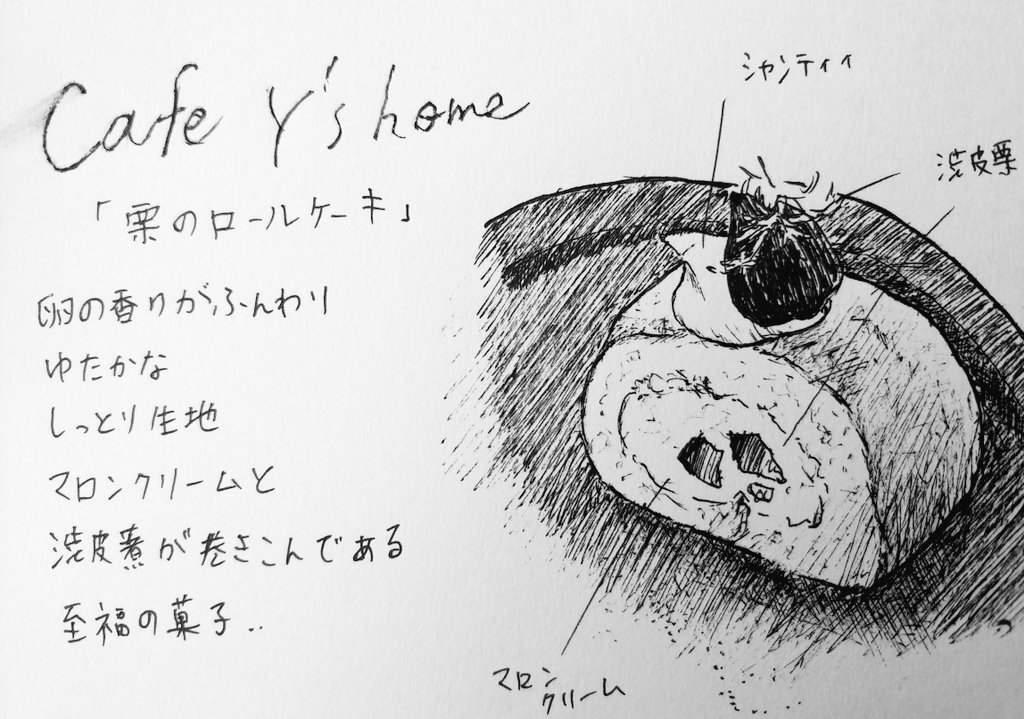 Cafe Y's home
「栗のロールケーキ」
卵の香りがふんわり
ゆたかな
しっとり生地
マロンクリームと
渋皮煮が巻きこんである
至福の菓子..
シャンティイ
渋皮栗
マロン
クリーム